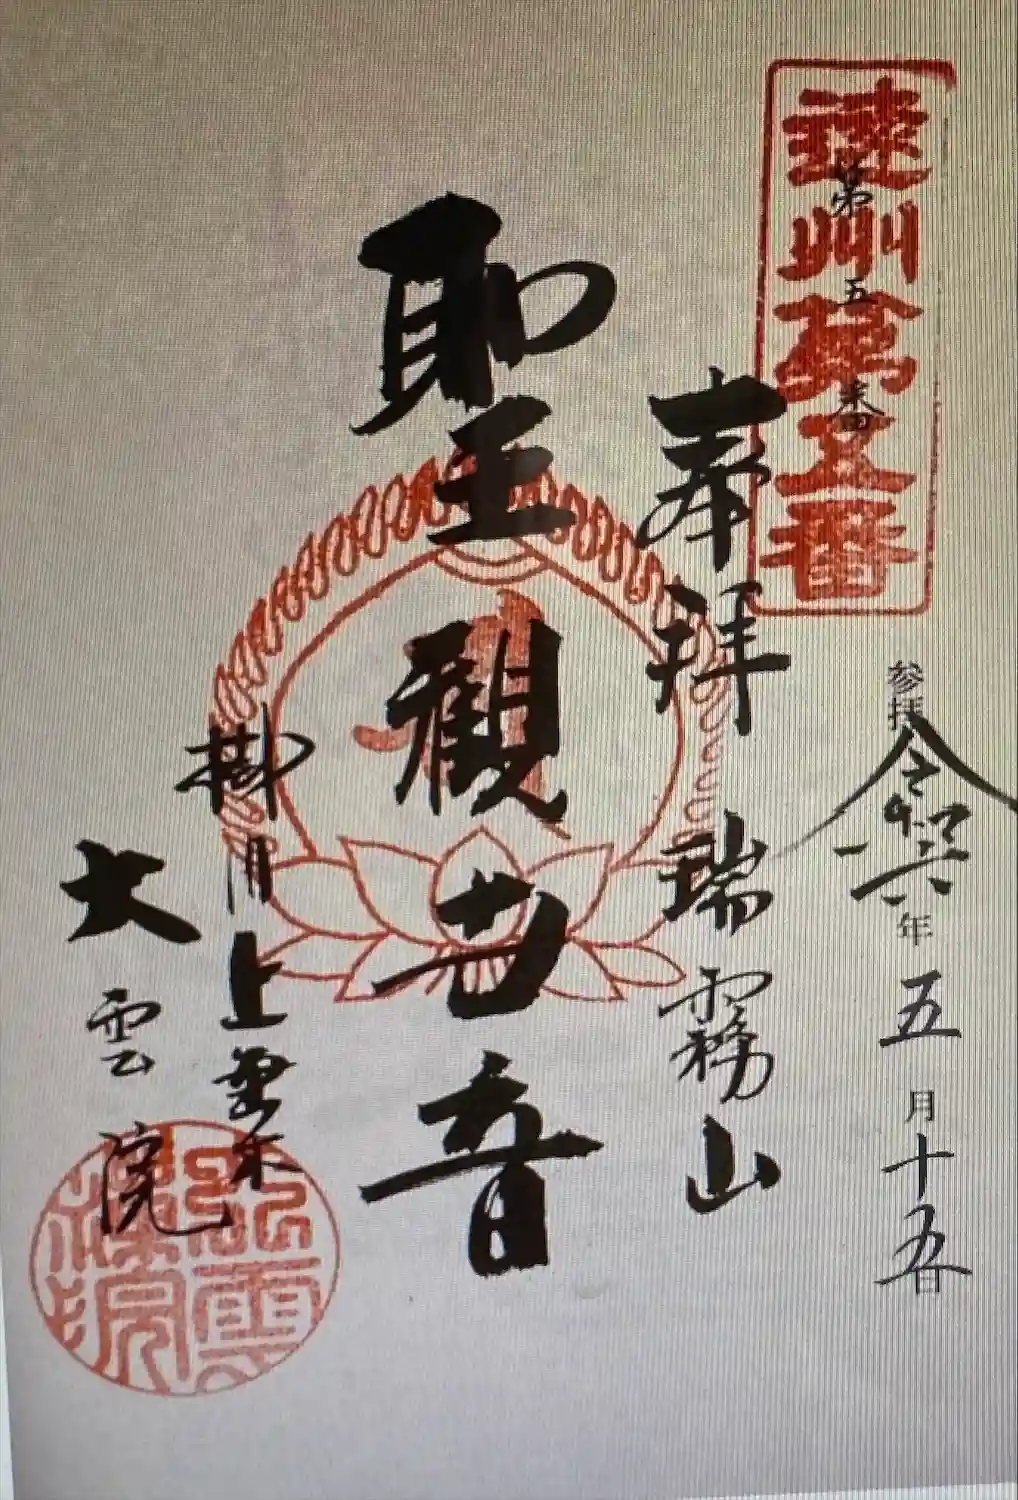 遠州
第五番
参拝 令和六年五月十五日
奉拝 瑞霧山
聖觀世音
掛川上垂木
大雲院